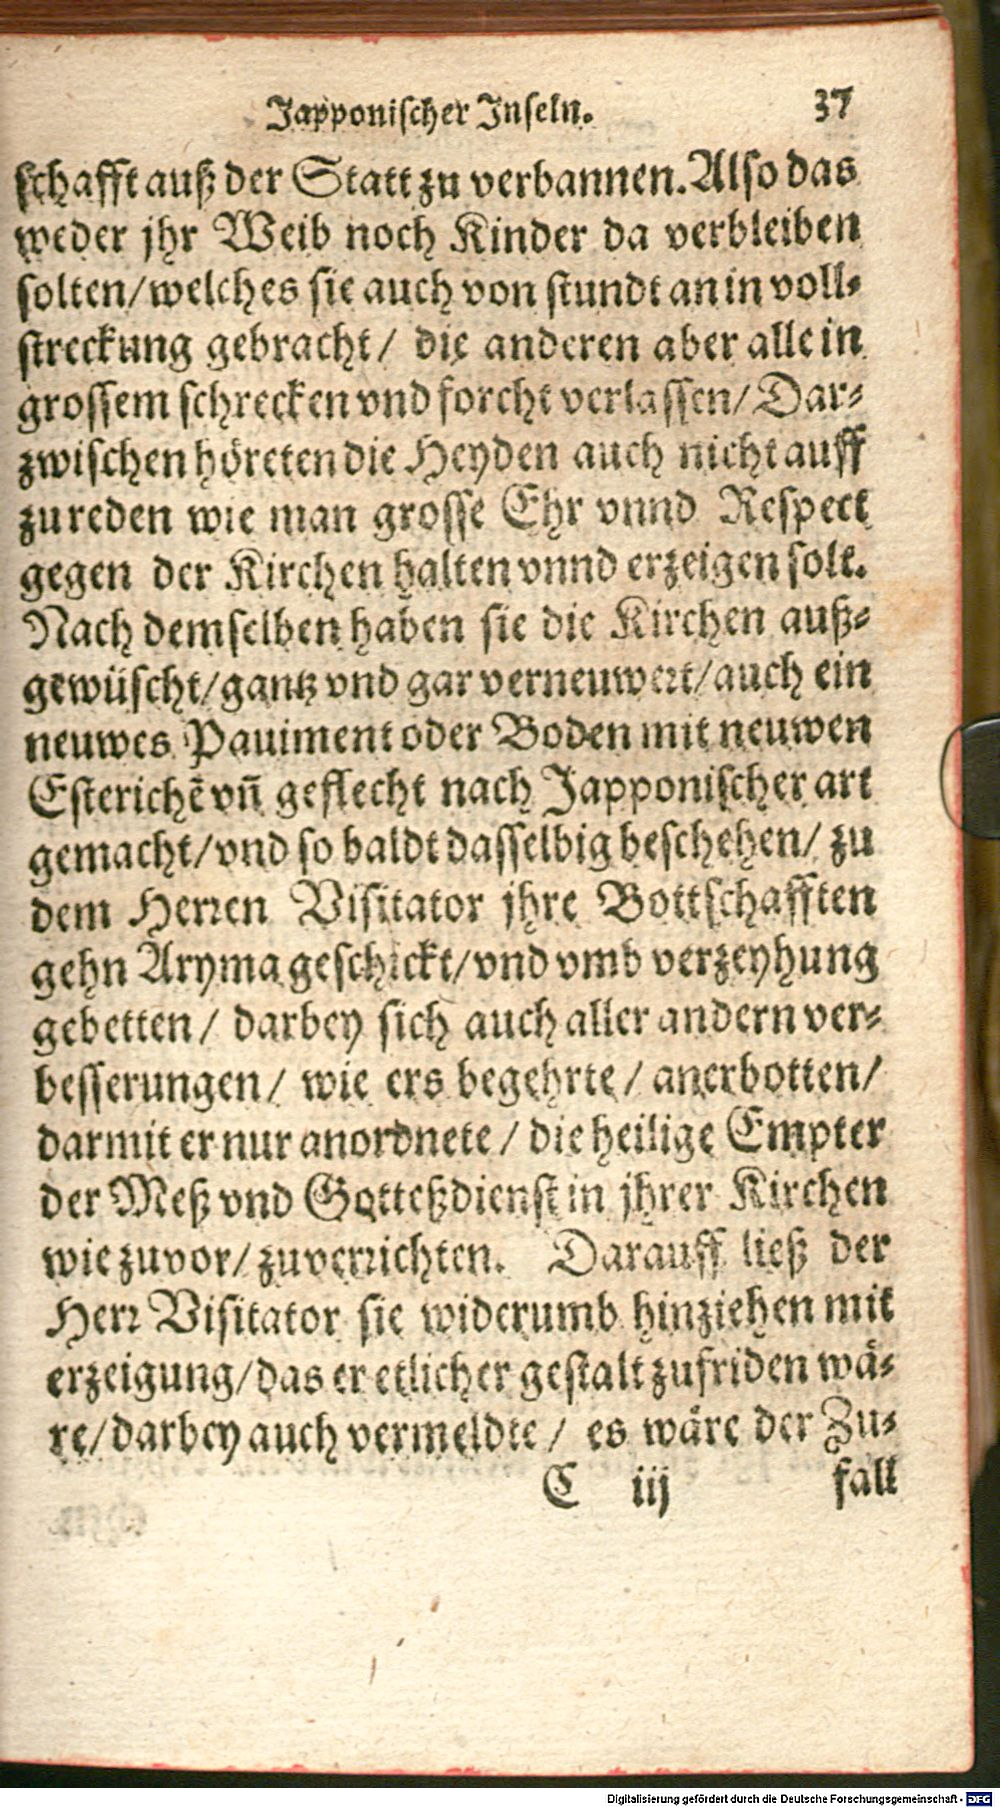 Japponischer Inseln. 37
schafft auß der Statt zu verbannen. Also das
weder jhr Weib noch Kinder da verbleiben
solten/ welches sie auch von stundt an in voll-
streckung gebracht/ die anderen aber alle in
grossem schrecken vnd forcht verlassen/ Dar-
zwischen höreten die Heyden auch nicht auff
zu reden wie man grosse Ehr vnnd Respect
gegen der Kirchen halten vnnd erzeigen solt.
Nach demselben haben sie die Kirchen auß-
gewüscht/ gantz vnd gar verneuwert/ auch ein
neuwes Paviment oder Boden mit neuwen
Esterichē vñ geflecht nach Japponischer art
gemacht/ vnd so baldt dasselbig beschehen/ zu
dem Herren Visitator jhre Bottschafften
gehn Aryma geschickt/ vnd vmb verzeyhung
gebetten/ darbey sich auch aller andern ver-
besserungen/ wie ers begehrte/ anerbotten/
darmit er nur anordnete/ die heilige Empter
der Meß vnd Gotteßdienst in jhrer Kirchen
wie zuvor/ zuverrichten. Darauff ließ der
Herr Visitator sie widerumb hinziehen mit
erzeigung/ das er etlicher gestalt zufriden wä-
re/ darbey auch vermeldte/ es wäre der Zu-
C iij fall
Digitalisierung gefördert durch die Deutsche Forschungsgemeinschaft - DFG